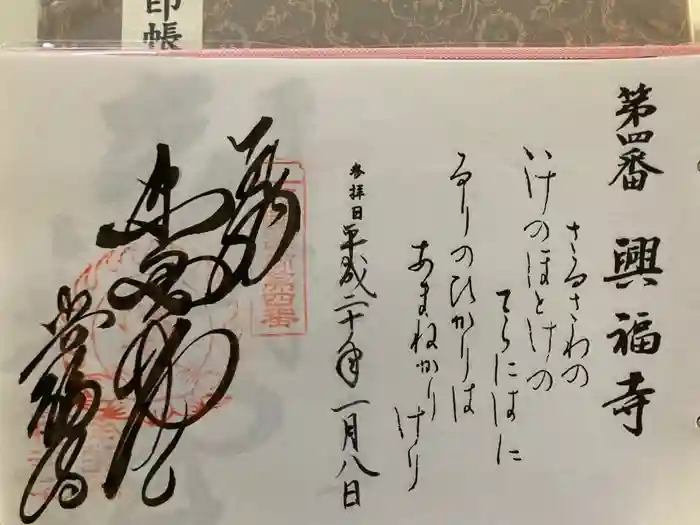 印帳
第四番 興福寺
さるさわの
いけのほとけの
てらにはに
るりのひかりは
あまねかりけり
参拝日 平成二十年一月八日
第四番